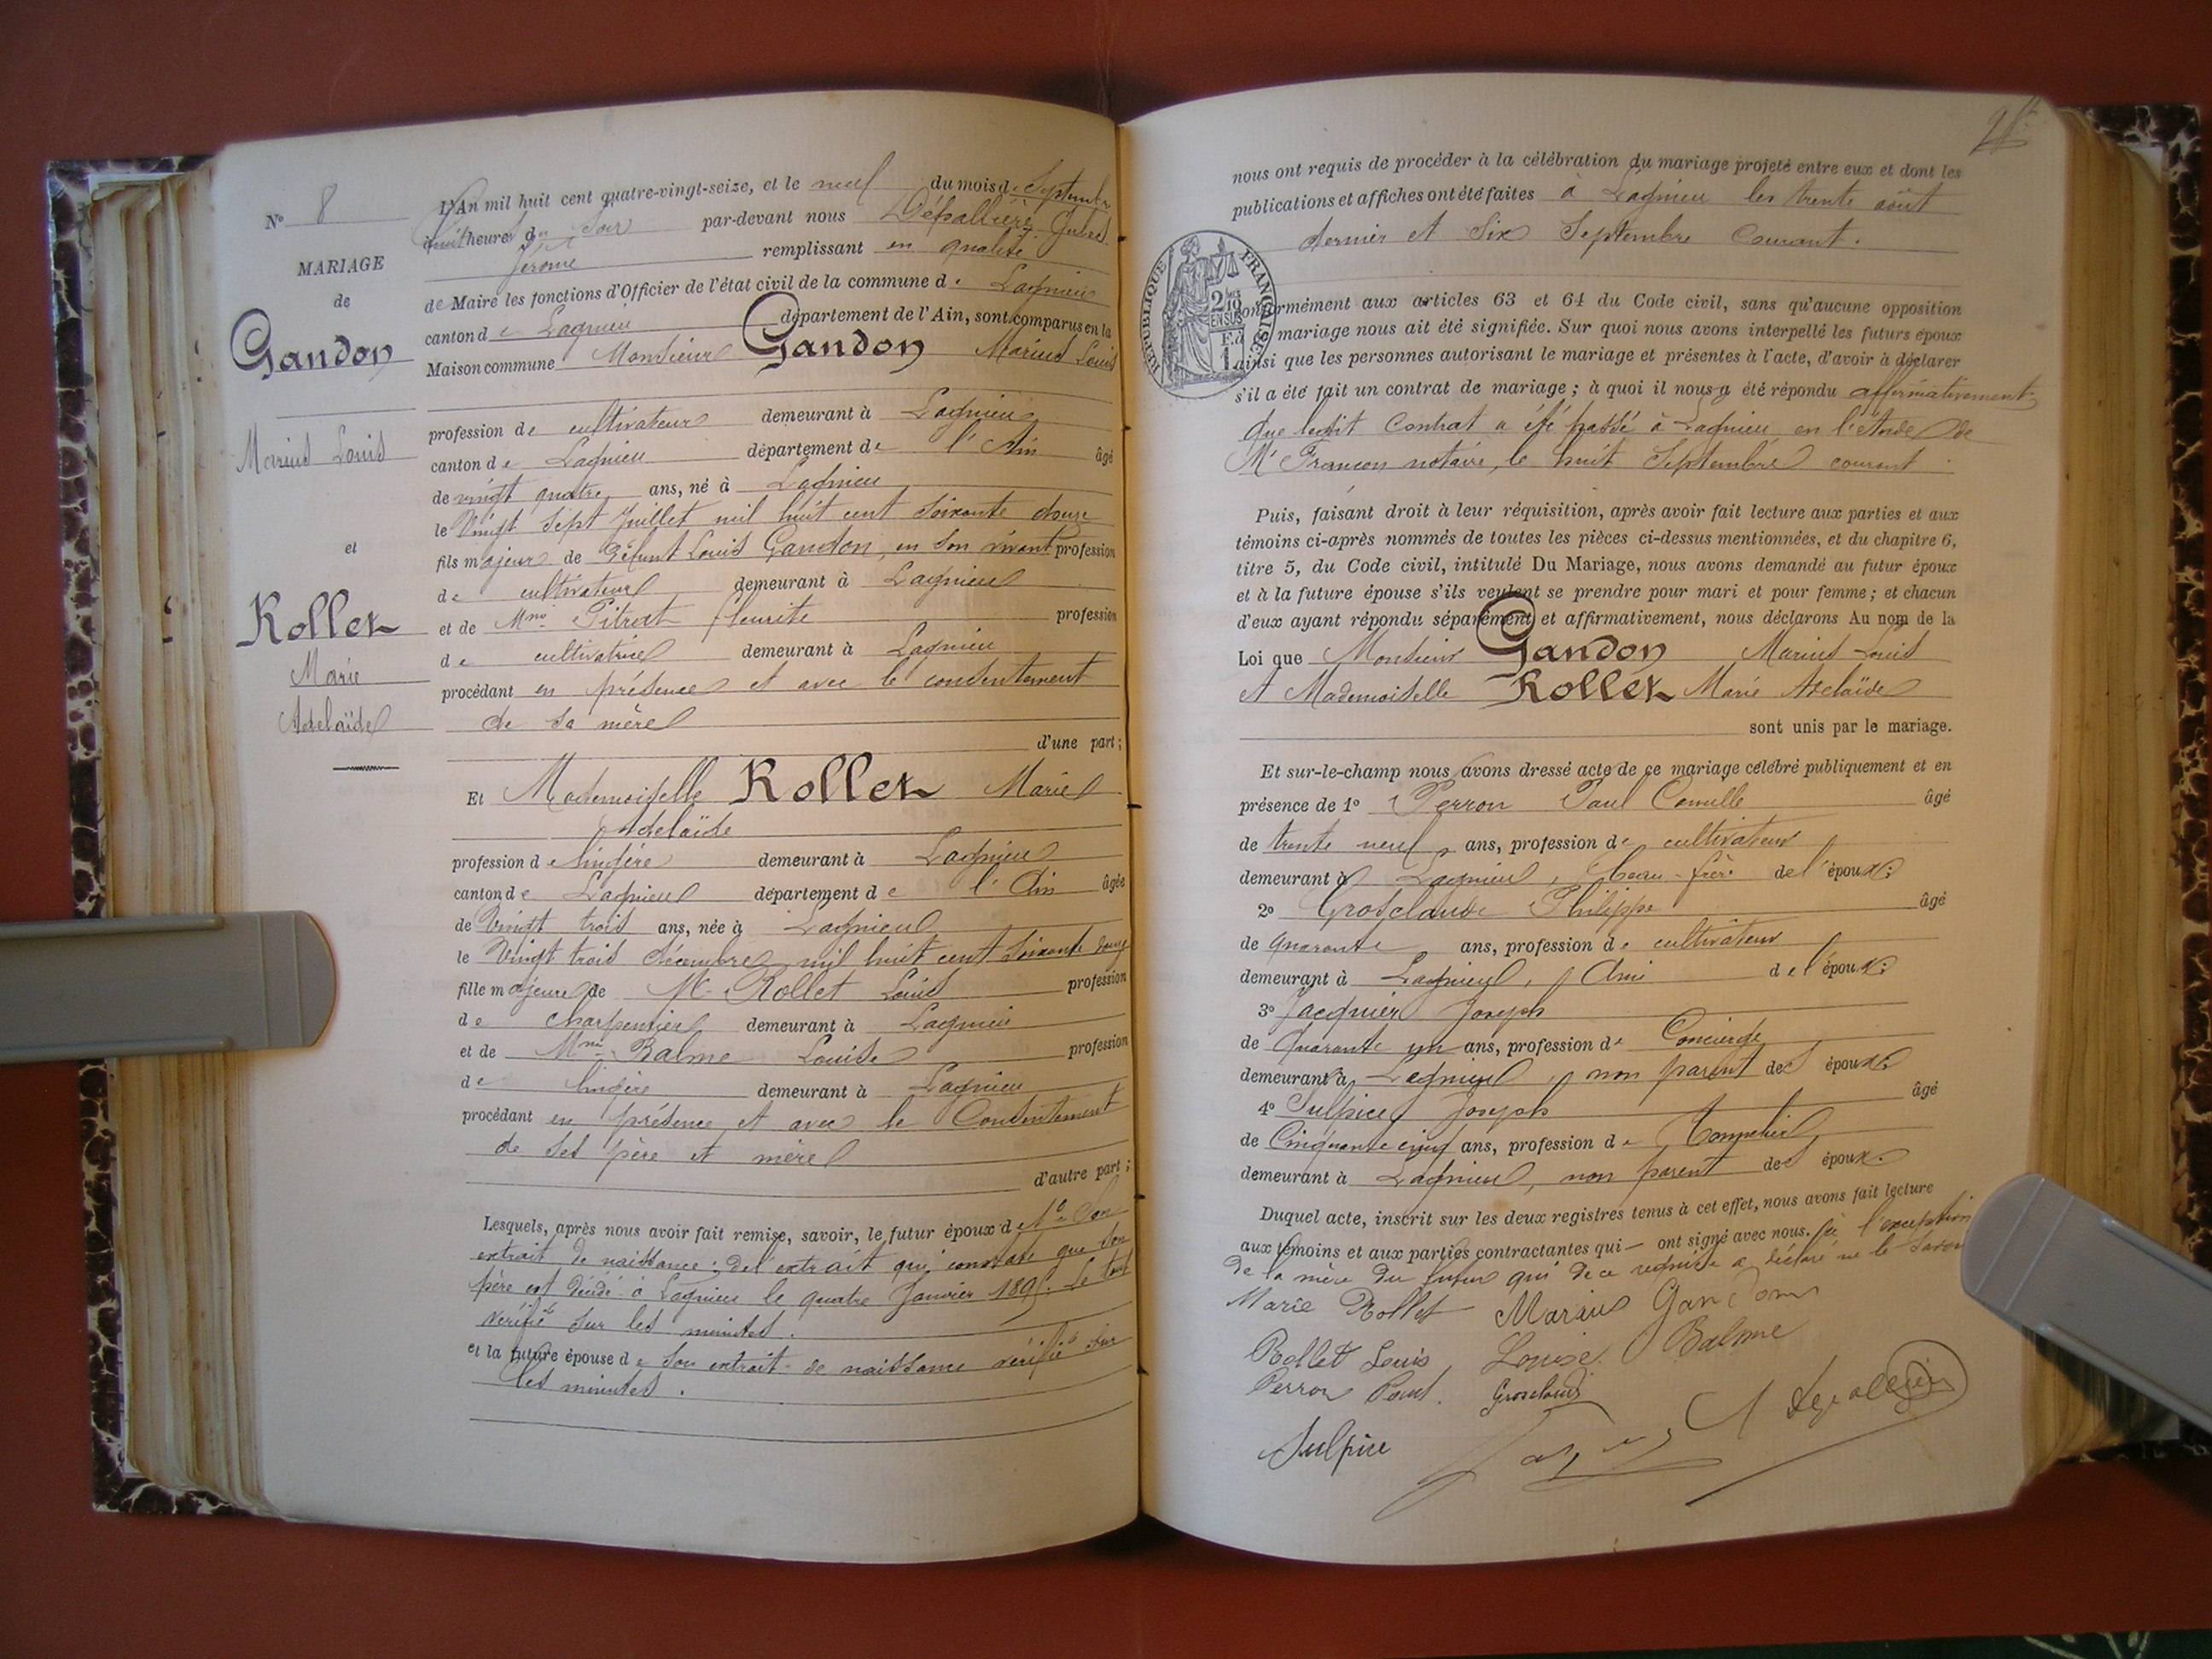 N° 8
MARIAGE
de
Gandon
Marius Louis
et
Rollet
Marie
Adelaïde
L'An mil huit cent quatre-vingt-seize, et le neuf du mois de Septembre
huit heures du soir par-devant nous Dépallière Jules
Jérome remplissant en qualité
de Maire les fonctions d'Officier de l'état civil de la commune de Lagnieu
canton de Lagnieu département de l'Ain, sont comparus en la
Maison commune Monsieur Gandon Marius Louis
profession de cultivateur demeurant à Lagnieu
canton de Lagnieu département de l'Ain âgé
de vingt quatre ans, né à Lagnieu
le Vingt Sept Juillet mil huit cent soixante douze
fils majeur de Défunt Louis Gandon, en son vivant profession
de cultivateur demeurant à Lagnieu
et de Mme Pitrat fleurite profession
de cultivatrice demeurant à Lagnieu
procédant en présence et avec le consentement
de sa mère
d'une part;
Et Mademoiselle Rollet Marie
Adelaïde
profession de lingère demeurant à Lagnieu
canton de Lagnieu département de l'Ain âgée
de Vingt trois ans, née à Lagnieu
le Vingt trois décembre mil huit cent soixante douze
fille majeure de M. Rollet Louis profession
de charpentier demeurant à Lagnieu
et de Mme Balme Louise profession
de lingère demeurant à Lagnieu
procédant en présence et avec le Consentement
de ses père et mère
d'autre part;
Lesquels, après nous avoir fait remise, savoir, le futur époux d 1° Son
extrait de naissance; del'extrait qui constate que son
père est décédé à Lagnieu le quatre Janvier 1895. Le tout
vérifié sur les minutes.
et la future épouse de son extrait de naissance vérifié sur
les minutes.
nous ont requis de procéder à la célébration du mariage projeté entre eux et dont les
publications et affiches ont été faites à Lagnieu les trente août
dernier et Six Septembre Courant.
RÉPUBLIQUE FRANÇAISE
conformément aux articles 63 et 64 du Code civil, sans qu'aucune opposition
mariage nous ait été signifiée. Sur quoi nous avons interpellé les futurs époux
ainsi que les personnes autorisant le mariage et présentes à l'acte, d'avoir à déclarer
s'il a été fait un contrat de mariage; à quoi il nous a été répondu affirmativement
que ledit Contrat a été passé à Lagnieu en l'étude de
Me Francon notaire, le huit Septembre courant.
Puis, faisant droit à leur réquisition, après avoir fait lecture aux parties et aux
témoins ci-après nommés de toutes les pièces ci-dessus mentionnées, et du chapitre 6,
titre 5, du Code civil, intitulé Du Mariage, nous avons demandé au futur époux
et à la future épouse s'ils veulent se prendre pour mari et pour femme; et chacun
d'eux ayant répondu séparément et affirmativement, nous déclarons Au nom de la
Loi que Monsieur Gandon Marius Louis
et Mademoiselle Rollet Marie Adelaïde
sont unis par le mariage.
Et sur-le-champ nous avons dressé acte de ce mariage célébré publiquement et en
présence de 1° Perron Paul Camille âgé
de trente neuf ans, profession de cultivateur
demeurant à Lagnieu, beau-frère de l'époux;
2° Grosclaude Philippe âgé
de quarante ans, profession de cultivateur
demeurant à Lagnieu, Ami de l'époux;
3° Jacquier Joseph
de Quarante un ans, profession de Concierge
demeurant à Lagnieu, non parent des époux;
4° Sulpice Joseph âgé
de Cinquante cinq ans, profession de
demeurant à Lagnieu, non parent des époux.
Duquel acte, inscrit sur les deux registres tenus à cet effet, nous avons fait lecture
aux témoins et aux parties contractantes qui ont signé avec nous. à l'exception
de la mère du futur qui de ce requise a déclaré ne le savoir
Marie Rollet Marius Gandon
Rollet Louis Louise Balme
Perron Paul. Grosclaude
Sulpice